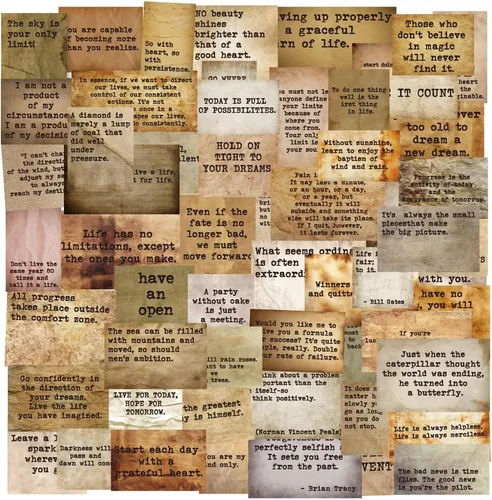 The sky is
your only
limit!
you are capable
of becoming more
than you realise.
So with
heart, so
with
persistence.
NO beauty
shines
brighter than
that of a
good heart.
ving up properly
a graceful
rn of life.
Those who
don't believe
in magic
will never
find it.
start doin
GO WHERE
I am not a
product
of my
circumstance
I am a produ
of my decisio
In essence, if we want to direct
our lives, we must take
control of our consistent
actions. It's not
once in a
apes our lives,
consistently.
A diamond is
merely a lump
of coal that
did well
under
pressure.
TODAY IS FULL
OF POSSIBILITIES.
u must not le
anyone define
your limits
because of
where you
come from.
Your only
limit is your
soul
To do one thing
well is the
irst thing
in life.
IT COUNT
heart
the
inable.
ver
too old to
dream a
new dream.
"I can't
the direction
of the wind, but
adjust my sa
to alway
reach my desti
ive a life,
t for life.
HOLD ON
TIGHT TO
YOUR DREAMS
Without sunshine,
learn to enjoy the
baptism of
wind and rain.
Pain i
It may last a minute,
or an hour, or a day,
or a year, but
eventually it will
subside and something
else will take its place.
If I quit, however,
it lasts forever.
Progress is the
activity of today
and the
assurance of tomorrow.
It's always the small
piecesthat make
the big picture.
Life has no
limitations, except
the ones you make.
Even if the
fate is no
longer bad,
we must
move forward
Don't live the
same year 80
times and
call it a life.
What seems ordina
is often
extraordi
Life i
to it.
- Bill Gates
Winners
and quitte
with you.
have no
you will
All progress
takes place outside
the comfort zone.
have
an
open
A party
without cake
is just
a meeting.
The sea can be filled
with mountains and
moved, so should
men's ambition.
Would you like me to
give you a formula
success? It's quite
ple, really. Double
ur rate of failure.
If you're
Just when the
caterpillar thought
the world was ending,
he turned into
a butterfly.
Go confidently in
the direction of
your dreams.
Live the life
you have imagined.
ill rain roses.
nt to have
we
trees.
hink about a problem
portant than the
itself-so
think positively.
(Norman Vincent Peale)
It does n
matter
slowly
go as lon
as you
do not
stop.
LIVE FOR TODAY,
HOPE FOR
TOMORROW.
the greatest
y is himself.
Life is always helpless,
life is always merciless.
Leave a
spark
wherev
you g
Darkness will
pass and
dawn will com
Start each day
with a
grateful heart.
ou are my
nd only.
perfectly selfish
It sets you free
from the past.
- Brian Tracy
VENT
The bad news is time
flies. The good news
is you're the pilot.